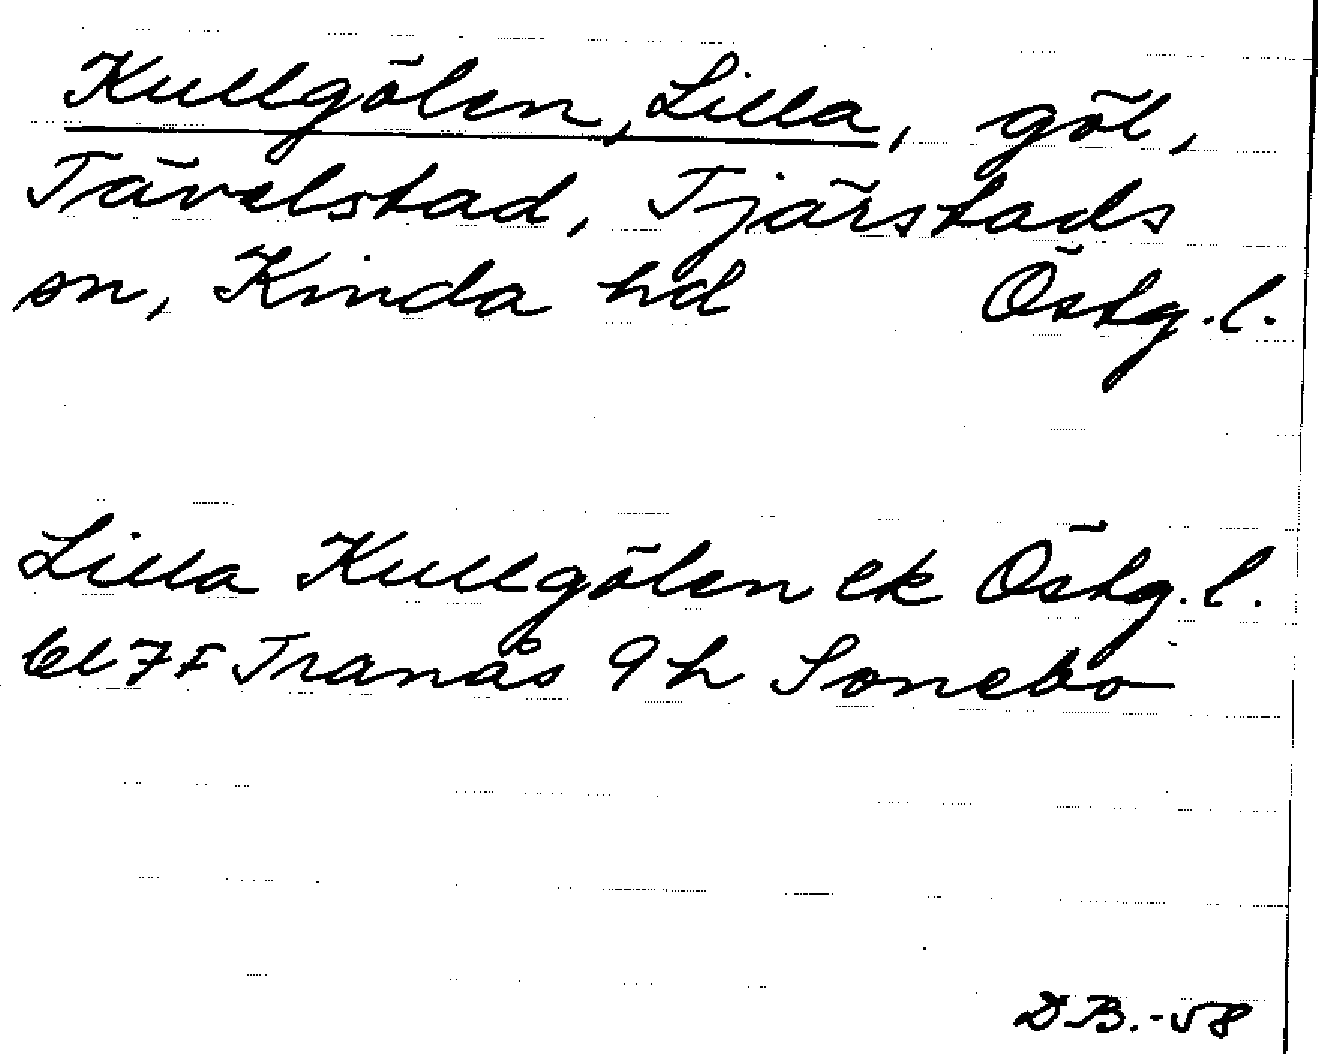 Kullgölen, Lilla, göl,
Tävelstad, Tjärstads
sn, Kinda hd Östg. l.
Lilla Kullgölen ek Östg. l.
bl 7F Tranås 9h Sonebo
D.B.-58